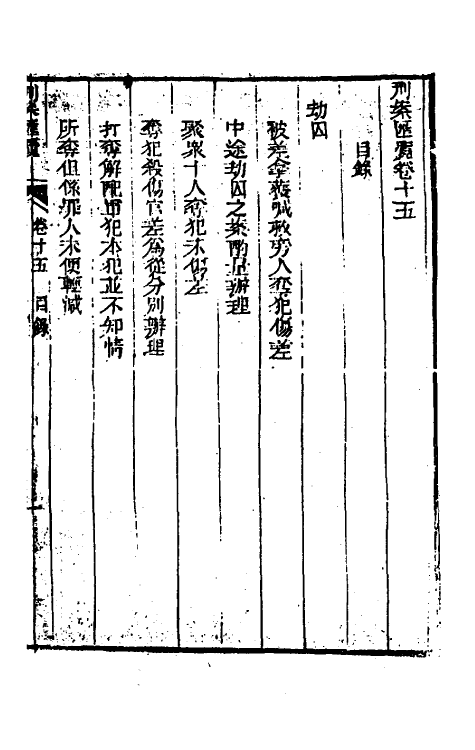 刑案匯覽卷十五
目錄
劫囚
被差拿獲喊救旁人奪犯傷差
中途劫囚之案酌量辦理
聚衆十人奪犯未傷差
奪犯殺傷官差為從分別辦理
打奪解配軍犯本犯並不知情
所奪但係罪人未便輕減
刑案匯覽 卷十五 目錄